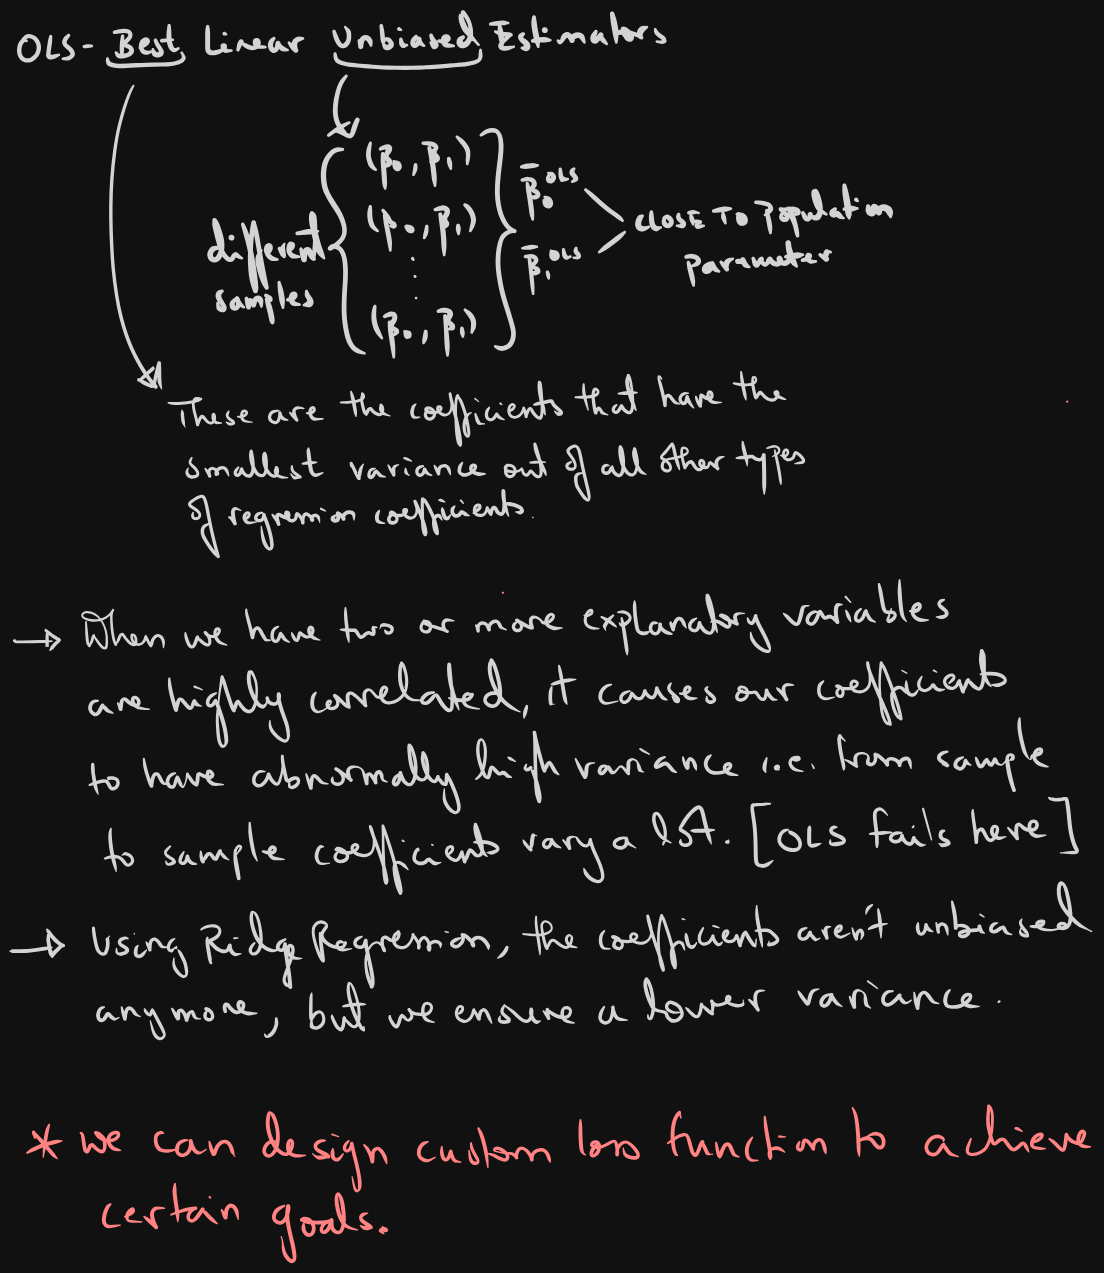 OLS - Best Linear Unbiased Estimators
(β₀, β₁)
(β₀, β₁)
(β₀, β₁)
different
samples
β̄₀ᴼᴸˢ
β̄₁ᴼᴸˢ
CLOSE TO Population
Parameter
These are the coefficients that have the
smallest variance out of all other types
of regression coefficients.
→ When we have two or more explanatory variables
are highly correlated, it causes our coefficients
to have abnormally high variance i.e. from sample
to sample coefficients vary a lot. [OLS fails here]
→ Using Ridge Regression, the coefficients aren't unbiased
anymore, but we ensure a lower variance.
* we can design custom loss function to achieve
certain goals.